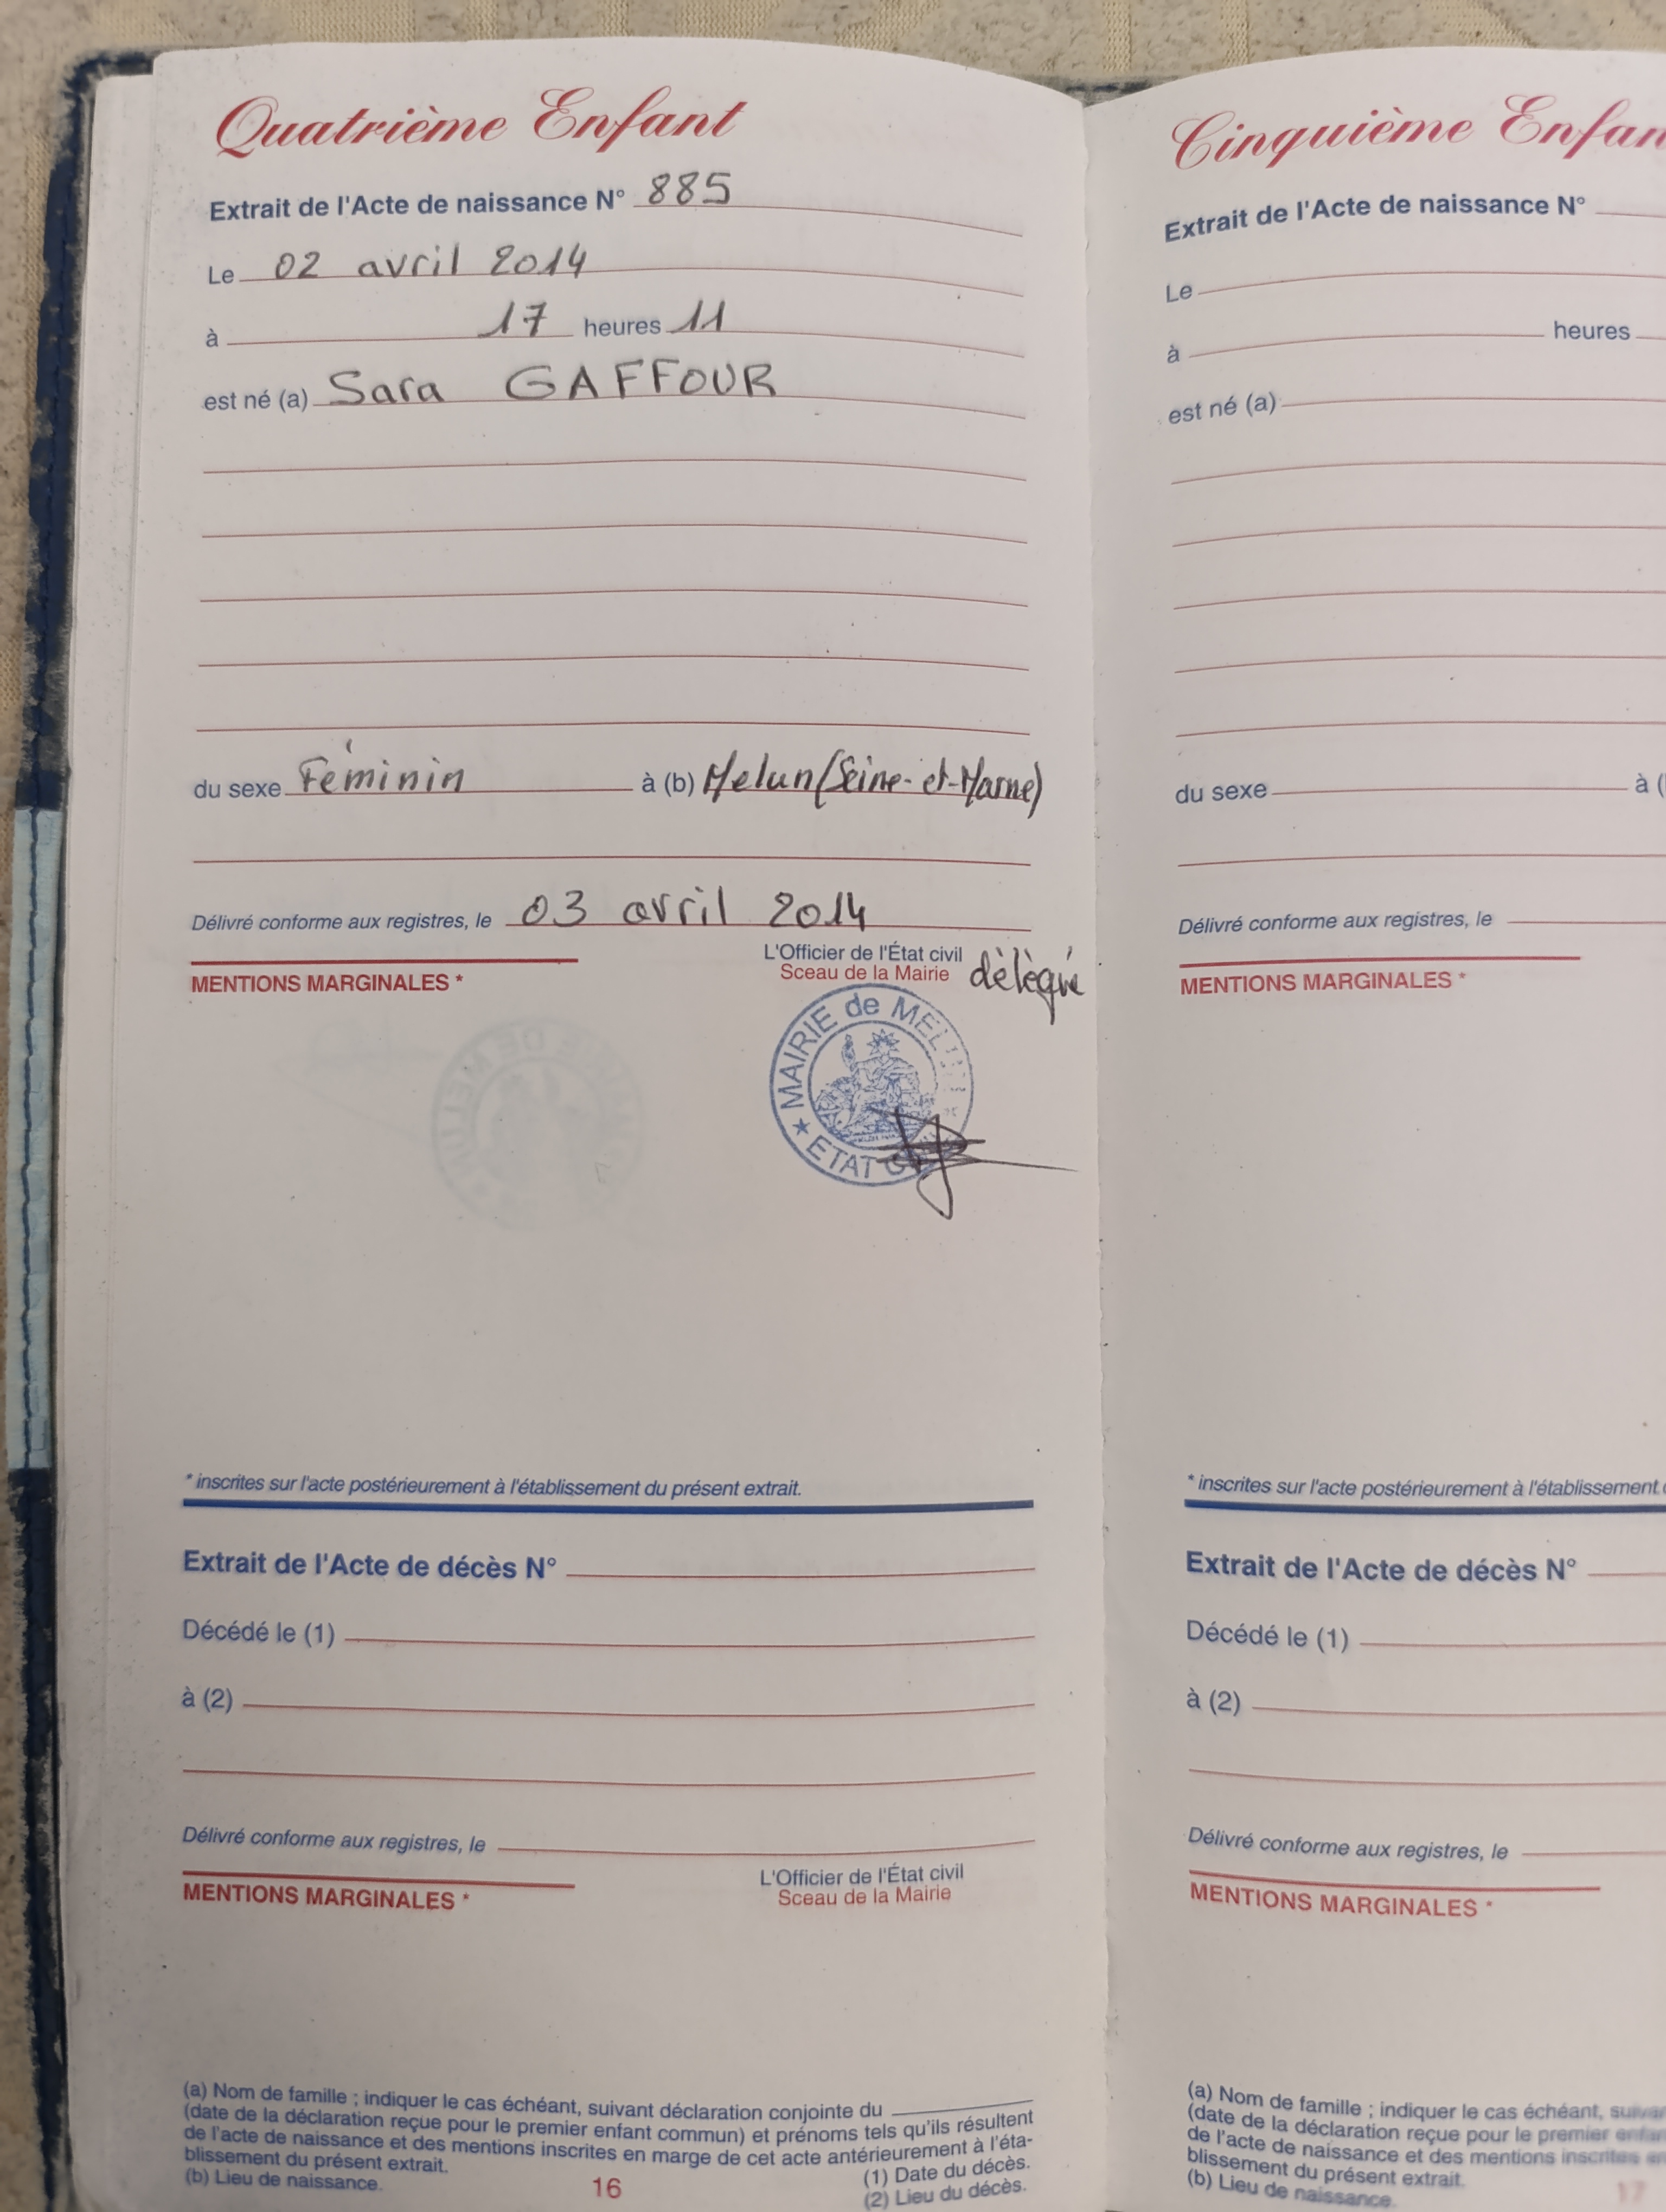 Quatrième Enfant
Extrait de l'Acte de naissance N° 885
Le 02 avril 2014
à 17 heures 11
est né (a) Sara GAFFOUR
du sexe Féminin à (b) Melun (Seine-et-Marne)
Délivré conforme aux registres, le 03 avril 2014
L'Officier de l'État civil
Sceau de la Mairie délégué
MENTIONS MARGINALES *
MAIRIE de MELUN
ETAT CIVIL
* inscrites sur l'acte postérieurement à l'établissement du présent extrait.
Extrait de l'Acte de décès N°
Décédé le (1)
à (2)
Délivré conforme aux registres, le
L'Officier de l'État civil
Sceau de la Mairie
MENTIONS MARGINALES *
(a) Nom de famille ; indiquer le cas échéant, suivant déclaration conjointe du
(date de la déclaration reçue pour le premier enfant commun) et prénoms tels qu'ils résultent
de l'acte de naissance et des mentions inscrites en marge de cet acte antérieurement à l'éta-
blissement du présent extrait.
(b) Lieu de naissance.
(1) Date du décès.
(2) Lieu du décès.
16
Cinquième Enfan
Extrait de l'Acte de naissance N°
Le
à heures
est né (a)
du sexe à (
Délivré conforme aux registres, le
MENTIONS MARGINALES *
* inscrites sur l'acte postérieurement à l'établissement
Extrait de l'Acte de décès N°
Décédé le (1)
à (2)
Délivré conforme aux registres, le
MENTIONS MARGINALES *
(a) Nom de famille ; indiquer le cas échéant,
(date de la déclaration reçue pour le premier
de l'acte de naissance et des mentions inscrites
blissement du présent extrait.
(b) Lieu de naissance.
17